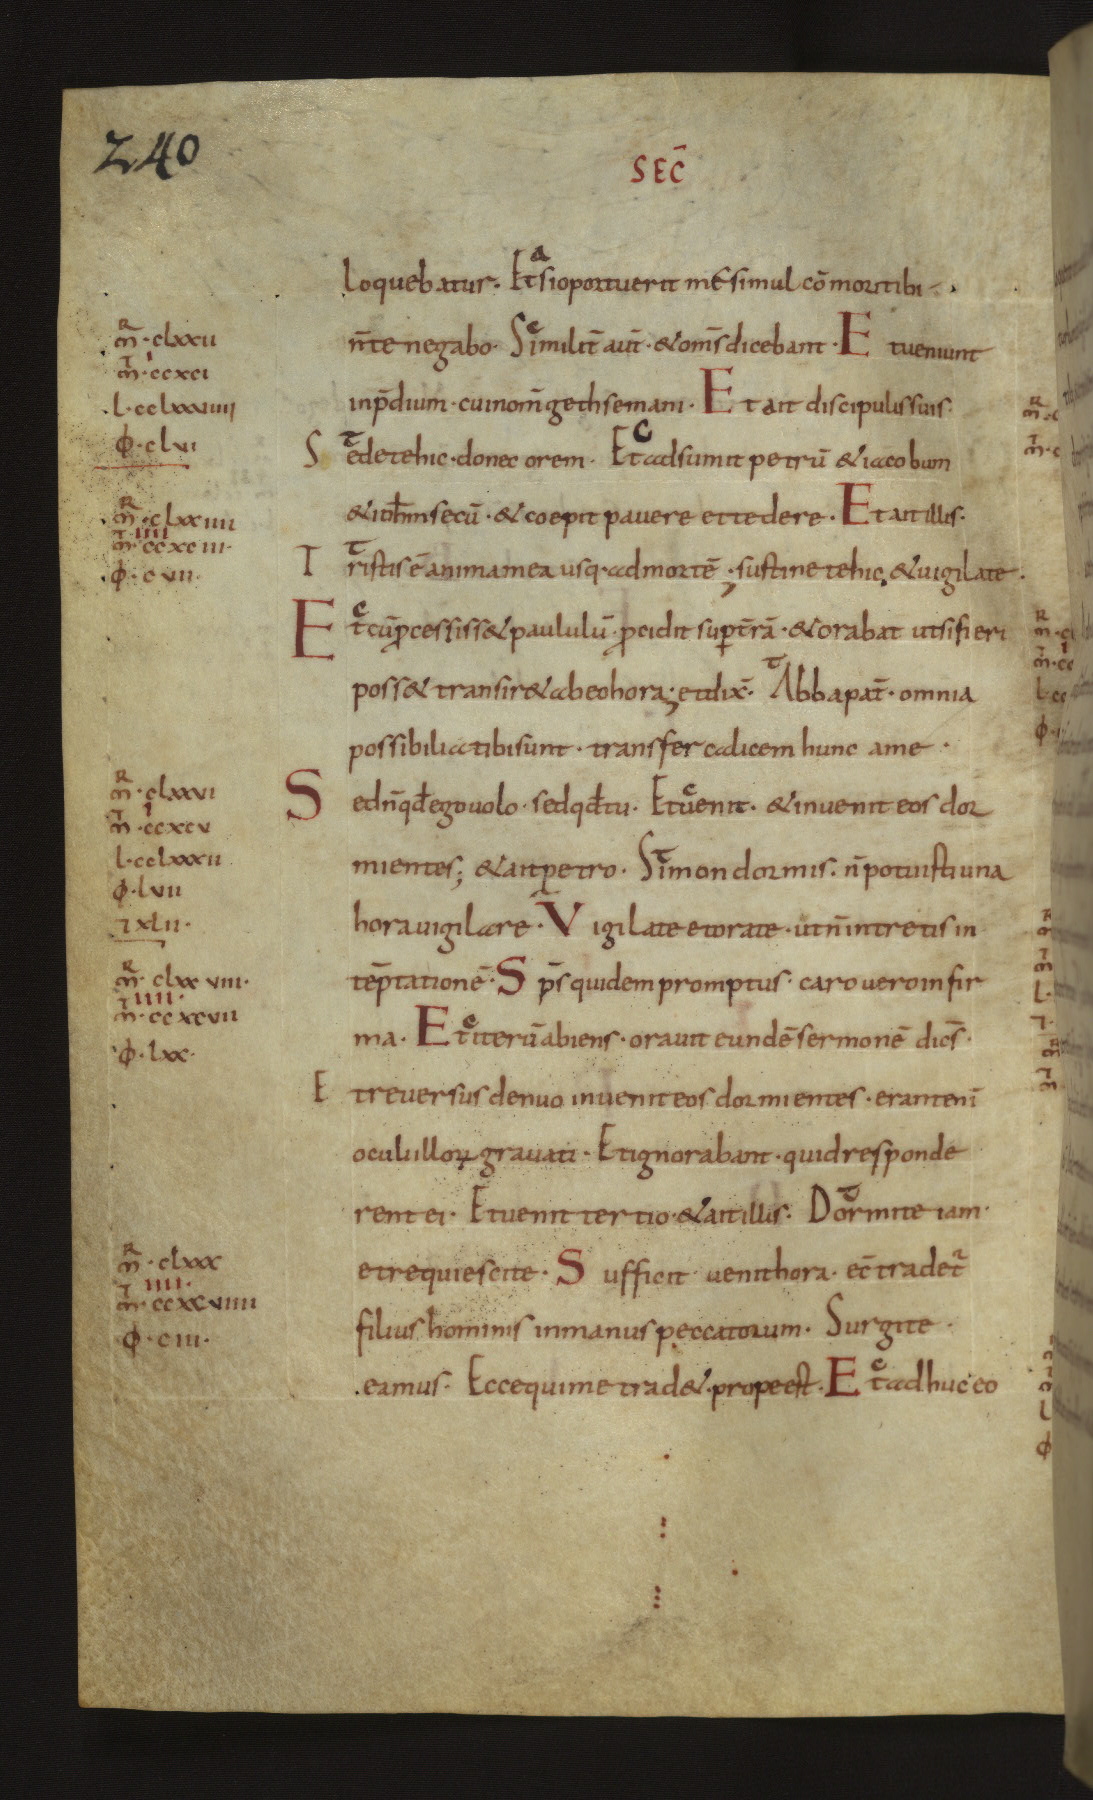 240
SEC̄
loquebatur. Et si oportuerit me simul cōmori tibi
n̄ te negabo. Similit̄ aut̄. & om̄s dicebant. Et veniunt
in p̄dium. cui nom̄ gethsemani. Et ait discipulis suis.
Sedete hic. donec orem. Et adsumit petrū & iacobum
& ioh̄m secū. & coepit pavere et tedere. Et ait illis.
Tristis ē anima mea usq· ad mortē. sustinete hic, & vigilate.
Et cū p̄cessiss& paululū. p̄cidit sup t̄rā. & orabat ut si fieri
poss& transir& ab eo hora; et dix̄. Abba pat̄. omnia
possibilia tibi sunt. transfer calicem hunc a me.
Sed n̄ qd̄ ego volo. sed qd̄ tu. Et venit. & invenit eos dor
mientes; & ait petro. Simon dormis. n̄ potuisti una
hora vigilare. Vigilate et orate. ut n̄ intretis in
tēptationē. Sp̄s quidem promptus. caro vero infir
ma. Et iterū abiens. oravit eundē sermonē dic̄s.
Et reversus denuo invenit eos dormientes. erant eni̅
oculi illoꝝ gravati. Et ignorabant. quid responde
rent ei. Et venit tertio. & ait illis. Dormite iam.
et requiescite. Sufficit venit hora. ec̄ tradet̄
filius hominis in manus peccatorum. Surgite.
eamus. Ecce qui me trad& prope est. Et adhuc eo
m̄. clxxii
m̄. ccxci
l. cclxxiiii
ф. clvi
m̄. clxxiiii
m̄. ccxciii.
ф. cvii.
m̄. clxxvi
m̄. ccxcv
l. cclxxxii
ф. lvii
ꞇ xlii.
m̄. clxxviii.
m̄. ccxcvii
ф. lxx.
m̄. clxxx
m̄. ccxcviiii
ф. ciii.